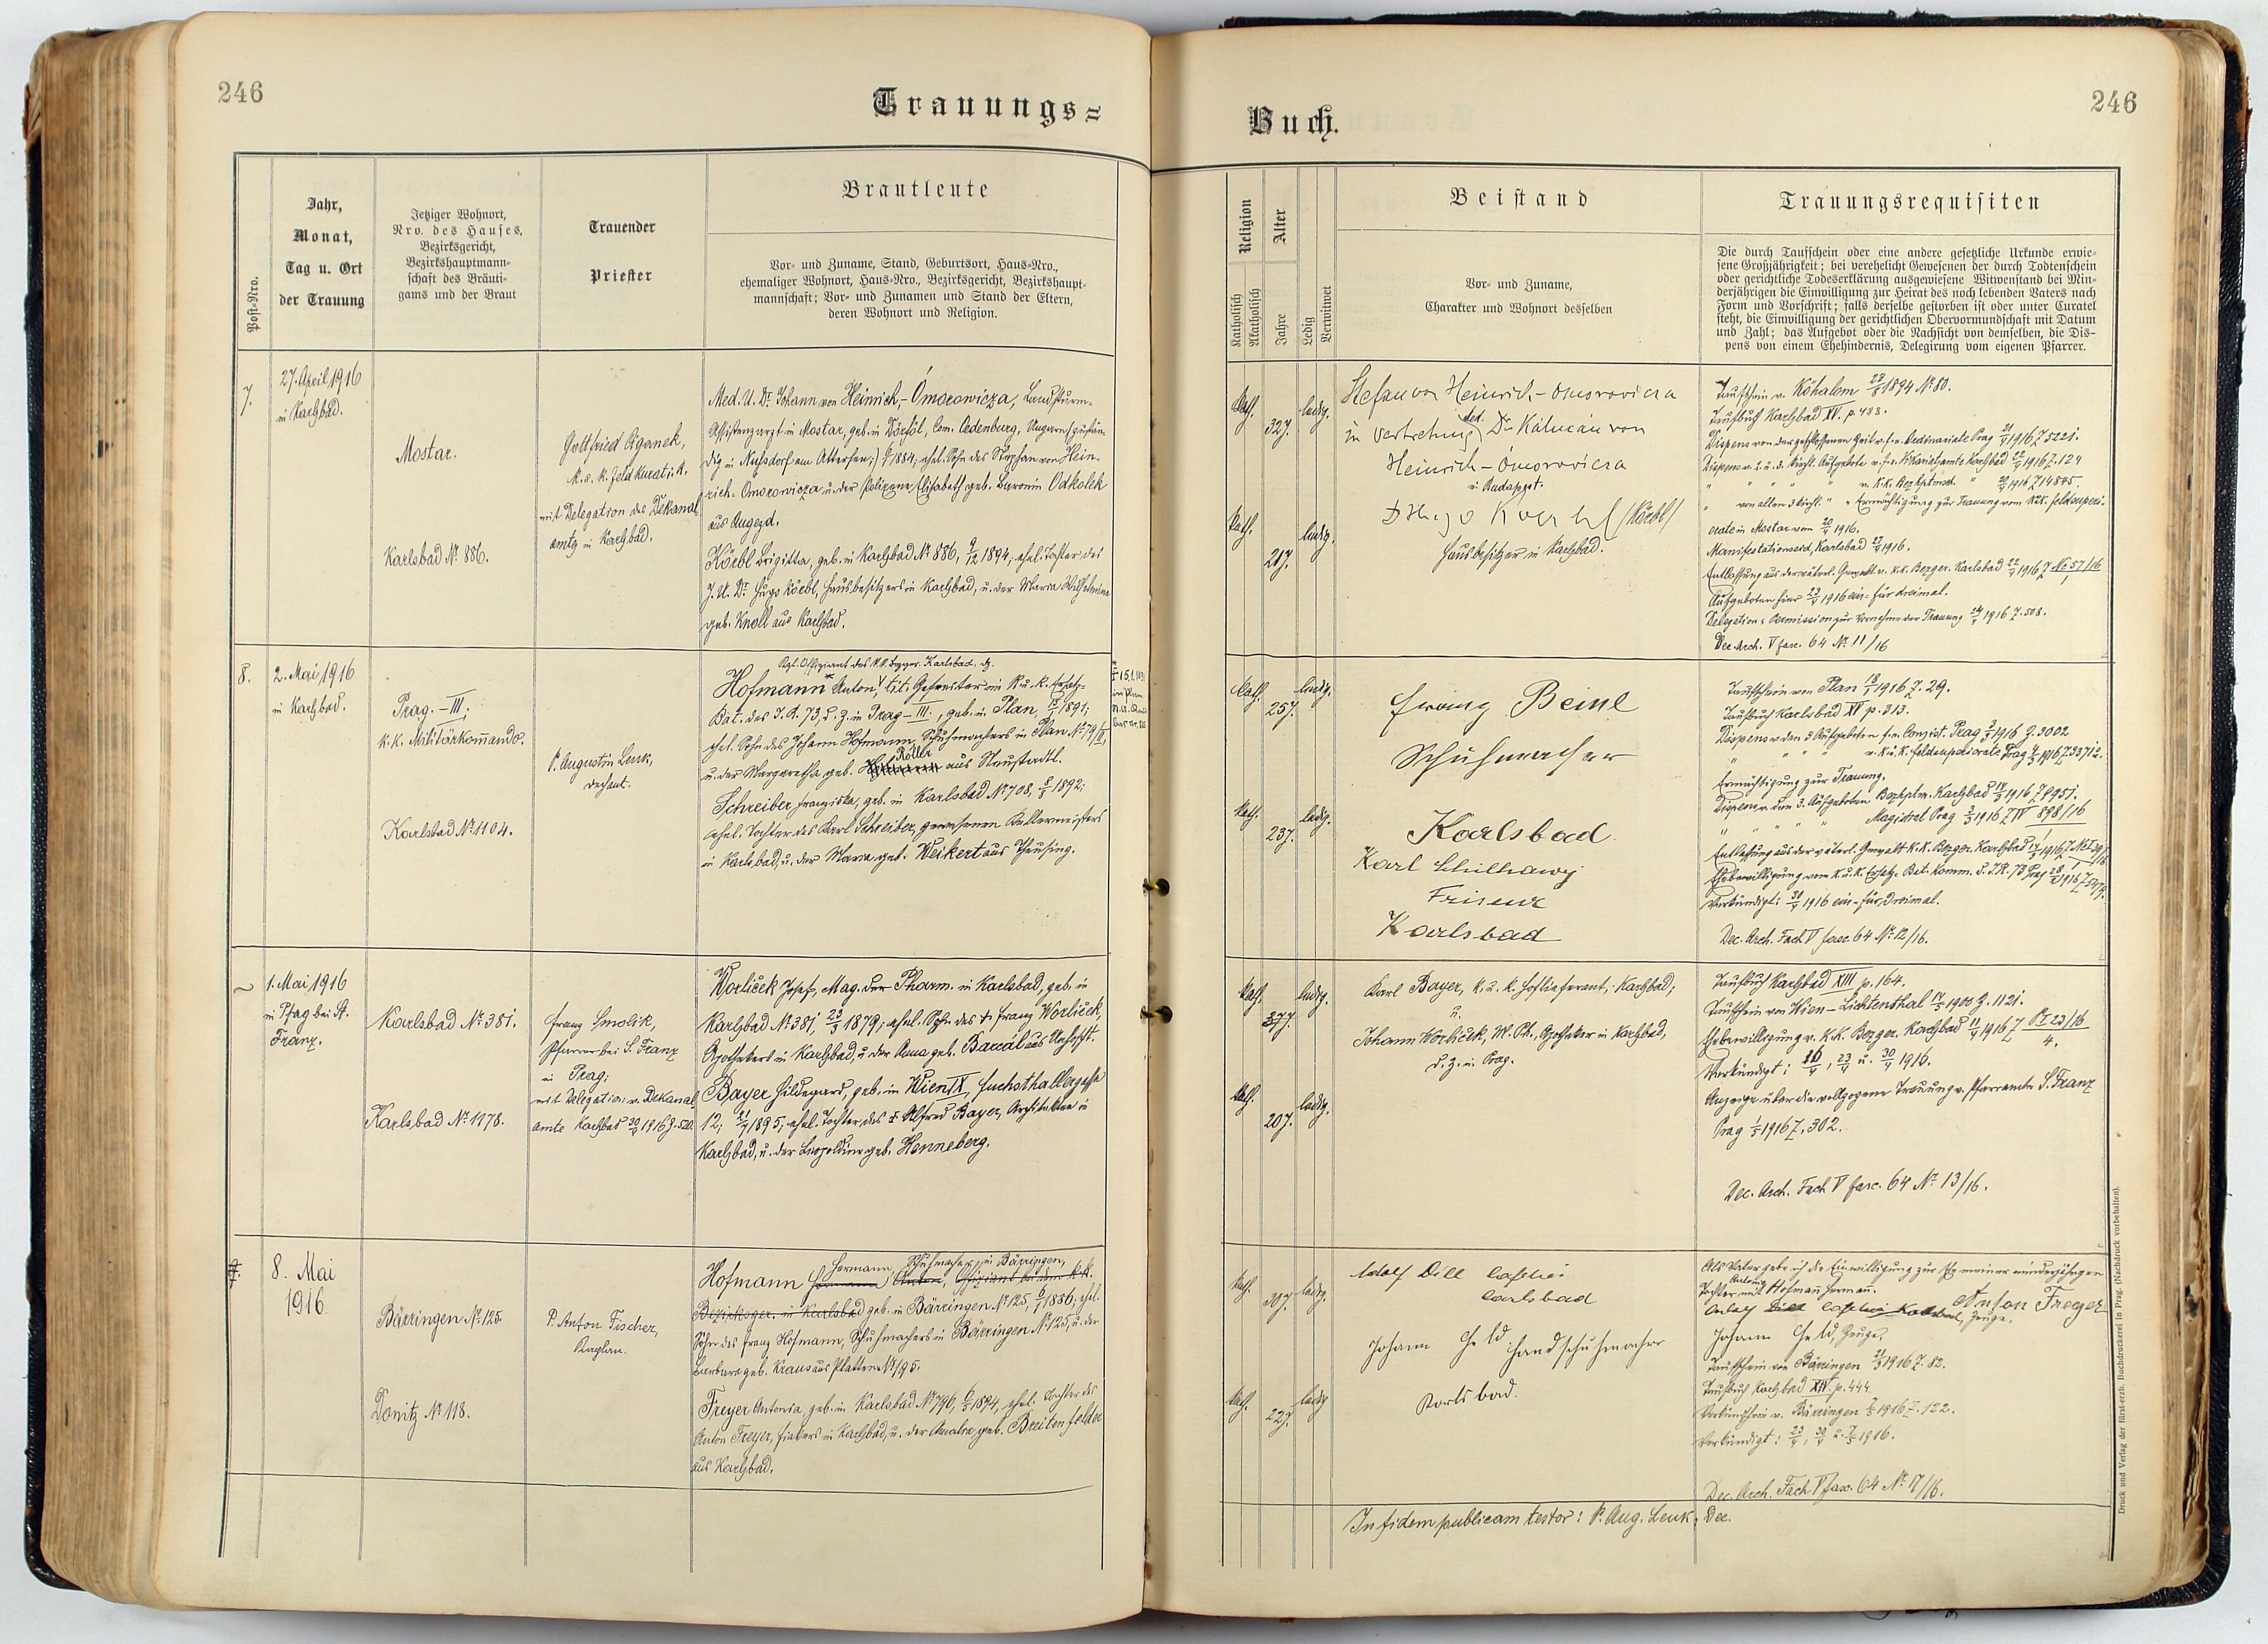 246
Trauungs=
Post=Nro.
Jahr,
Monat,
Tag u. Ort
der Trauung
Jetziger Wohnort,
Nro. des Hauses,
Bezirksgericht,
Bezirkshauptmann=
schaft des Bräuti=
gams und der Braut
Trauender
Priester
Brautleute
Vor= und Zuname, Stand, Geburtsort, Haus=Nro.,
ehemaliger Wohnort, Haus=Nro., Bezirksgericht, Bezirkshaupt=
mannschaft; Vor= und Zunamen und Stand der Eltern,
deren Wohnort und Religion.
7.
27. April 1916
in Karlsbad.
Mostar.
Karlsbad No 886.
Gottfried Ciganek,
k. u. k. Feldkurat i. R.
mit Delegation des Dekanal
amtes in Karlsbad.
Med. U. Dr. Johann von Heinrich,- Ómorovicza, Landsturm-
Assistenzarzt in Mostar, geb. in Com. Oedenburg, Ungarn (zustän-
dig in Nußdorf am Attersee;) 1884, ehel. Sohn des Stephan von Hein-
rich- Omorovicza u. der Polixena Elisabeth geb. Baronin Odkolek
aus Augezd.
Körbl Brigitta, geb. in Karlsbad No 886, 9/12 1894; ehel. Tochter des
J. U. Dr. Hugo Körbl, Hausbesitzers in Karlsbad, u. der Maria Wilhelmine
geb. Knoll aus Karlsbad.
8.
2. Mai 1916
in Karlsbad.
Prag.-III;
k. k. Militärkommando.
Karlsbad No 1104.
P. Augustin Lenk,
Dechant.
Kgl. Offiziant des k. k. Bezger. Karlsbad, dz.
Hofmann Anton, tit. Gefreiter im k. u. k. Ersatz-
Bat. des I. R. 73, d. z. in Prag-III., geb. in Plan, 1891;
ehel. Sohn des Johann Hofmann, Schuhmachers in Plan No 79/II,
Roller
u. der Margaretha geb. aus Neustadtl.
Schreiber Franziska, geb. in Karlsbad No 708, 1892;
ehel. Tochter des Karl Schreiber, gewesenen Kellermeisters
in Karlsbad, u. der Maria geb. Weikert aus Theusing.
~
1. Mai 1916
in Prag bei St.
Franz.
Karlsbad No 381.
Karlsbad No 1178.
Franz Smolik,
Pfarrer bei S. Franz
in Prag;
mit Delegation v. Dekanal
amte Karlsbad 30/4 1916 z. 520.
Worliček Josef, Mag. der Pharm. in Karlsbad, geb. in
Karlsbad No 381, 1879; ehel. Sohn des + Franz Worliček,
Apothekers in Karlsbad, u. der Anna geb. aus
Bayer Hildegard, geb. in Wien IX, Fuchsthallergasse
12; 1895; ehel. Tochter des + Alfred Bayer, Architekten in
Karlsbad, u. der Leopoldine geb. Henneberg.
8. Mai
1916.
Bärringen No 125.
Donitz No 118.
P. Anton Fischer,
Kaplan.
Hermann, Schuhmacher in Bärringen,
Hofmann Anton, Offiziant bei dem k. k.
Bezirksger. in Karlsbad geb. in Bärringen No 125, 1886; ehel.
Sohn des Franz Hofmann, Schuhmachers in Bärringen No 125, u. der
Barbara geb. Kraus aus Platten No 195.
Freyer Antonia, geb. in Karlsbad No 796, 1894, ehel. Tochter des
Anton Freyer, Fiakers in Karlsbad, u. der Amalia geb. Breitenfelder
aus Karlsbad.
Buch.
246
Religion
Katholisch
Akatholisch
Alter
Jahre
Ledig
Verwitwet
Beistand
Vor= und Zuname,
Charakter und Wohnort desselben
Trauungsrequisiten
Die durch Taufschein oder eine andere gesetzliche Urkunde erwie=
sene Großjährigkeit; bei verehelicht Gewesenen der durch Todtenschein
oder gerichtliche Todeserklärung ausgewiesene Witwenstand bei Min=
derjährigen die Einwilligung zur Heirat des noch lebenden Vaters nach
Form und Vorschrift; falls derselbe gestorben ist oder unter Curatel
steht, die Einwilligung der gerichtlichen Obervormundschaft mit Datum
und Zahl; das Aufgebot oder die Nachsicht von demselben, die Dis=
pens von einem Ehehindernis, Delegirung vom eigenen Pfarrer.
Kath.
32 J.
ledig.
Kath.
21 J.
ledig.
Stefan von Heinrich-Omorovicza
in Vertretung des Dr. Kálmán von
Heinrich-Ómorovicza
in Budapest.
Dr Hugo Koerbl /Körbl/
Hausbesitzer in Karlsbad.
Taufschein v. Köhalom 1894 No 80.
Taufbuch Karlsbad XV. p. 488.
Dispens von der geschlossenen Zeit v. f. e. Ordinariate Prag 1916 Z 5221.
Dispens v. 2. u. 3. kirchl. Aufgebote v. f. e. Vikariatsamte Karlsbad 1916 Z. 124
" " " " " v. k. k. Bez Hptmsch. " 1916 Z 14845.
" von allen 3 kirchl. " u. Ermächtigung zur Trauung vom k. u. k. Feldsuperi-
orate in Mostar vom 20/4 1916.
Manifestationseid, Karlsbad 1916.
Entlassung aus der väterl. Gewalt v. k. k. Bezger. Karlsbad 22/4 1916 Z Nc 57/16
Aufgeboten hier 23/4 1916 ein- für dreimal.
Delegation u. Permission zur Vornahme der Trauung 1916 Z. 508.
Dec. Arch. V fasc. 64 No 11/16
Kath.
25 J.
ledig.
Kath.
23 J.
ledig.
Franz Beinl
Schuhmacher
Karlsbad
Karl
Friseur
Karlsbad
Taufschein von Plan 1916 Z. 29.
Taufbuch Karlsbad XV p. 313.
Dispens v. den 3 Aufgeboten f. e. Consist. Prag 1916 Z. 3002
" " " v. k. u. k. Feldsuperiorate Prag 1916
Ermächtigung zur Trauung.
Dispens v. den 3. Aufgeboten Bezhptm. Karlsbad 1916
" " " " Magistrat Prag 1916 Z IV 898/16
Entlassung aus der väterl. Gewalt k. k. Bezger. Karlsbad 1916
Ehebewilligung vom k. u. k. Ersatz- Bat. Komm. d. I. R. 73 Prag 1916
Verkündigt: 30/4 1916 ein-für dreimal.
Dec. Arch. Fach V fasc. 64 No 12/16.
Kath.
37 J.
ledig.
Kath.
20 J.
ledig.
Karl Bayer, k. u. k. Hoflieferant, Karlsbad;
u.
Johann Worliček, M. Ph., Apotheker in Karlsbad,
d. z. in Prag.
Taufbuch Karlsbad XIII p. 164.
Taufschein von Wien-Lichtenthal 1900 Z. 1121.
Ehebewilligung v. k. k. Bezger. Karlsbad 1916 Z P I 23/16
4.
Verkündigt: 16/4, 23/4 u. 30/4 1916.
Anzeige über die vollzogene Trauung v. Pfarramte S. Franz
Prag 1/5 1916 Z. 302.
Dec. Arch. Fach V fasc. 64 No 13/16.
Kath.
ledig.
Kath.
22 J.
ledig
Adolf Dill
Carlsbad
Johann Held Handschuhmacher
Karlsbad.
Als Vater gebe ich die Einwilligung zur Ehe meiner minderjährigen
Tochter Antonia mit Hofmann Hermann.
Anton Freyer
Zeuge.
Johann Held, Zeuge,
Taufschein von Bärringen 1916 Z. 82.
Taufbuch Karlsbad XIV. p. 444.
Verkündschein v. Bärringen 1916 Z. 122.
Verkündigt: 23/4, 30/4 u. 7/5 1916.
Dec. Arch. Fach V fasc. 64 No 17/16.
In fidem publicam testor: P. Aug. Lenk, Dec.
Druck und Verlag der fürst=erzb. Buchdruckerei in Prag. (Nachdruck vorbehalten).